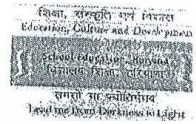 शिक्षा, संस्कृति एवं विकास
Education, Culture and Development
School education, Haryana
विद्यालय शिक्षा, हरियाणा
तमसो मा ज्योतिर्गमय
Lead me from Darkness to Light